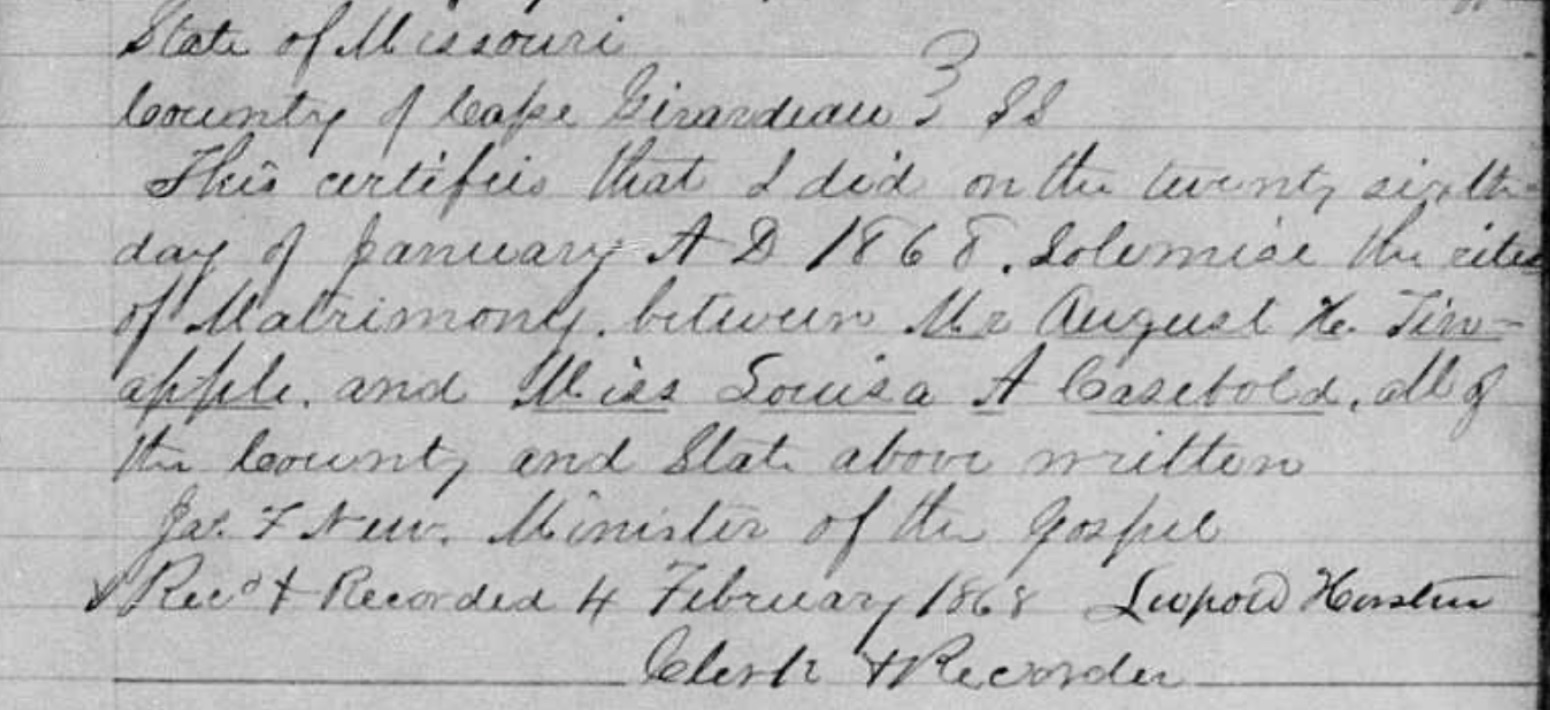 State of Missouri
County of Cape Girardeau } SS
This certifies that I did on the twenty sixth
day of January A D 1868. Solemise the rites
of Matrimony. between Mr August H. Tin-
apple. and Miss Louisa A Casebold, all of
the County and State above written
Jas. F New. Minister of the Gospel
Recd & Recorded 4 February 1868 Leopold
Clerk & Recorder